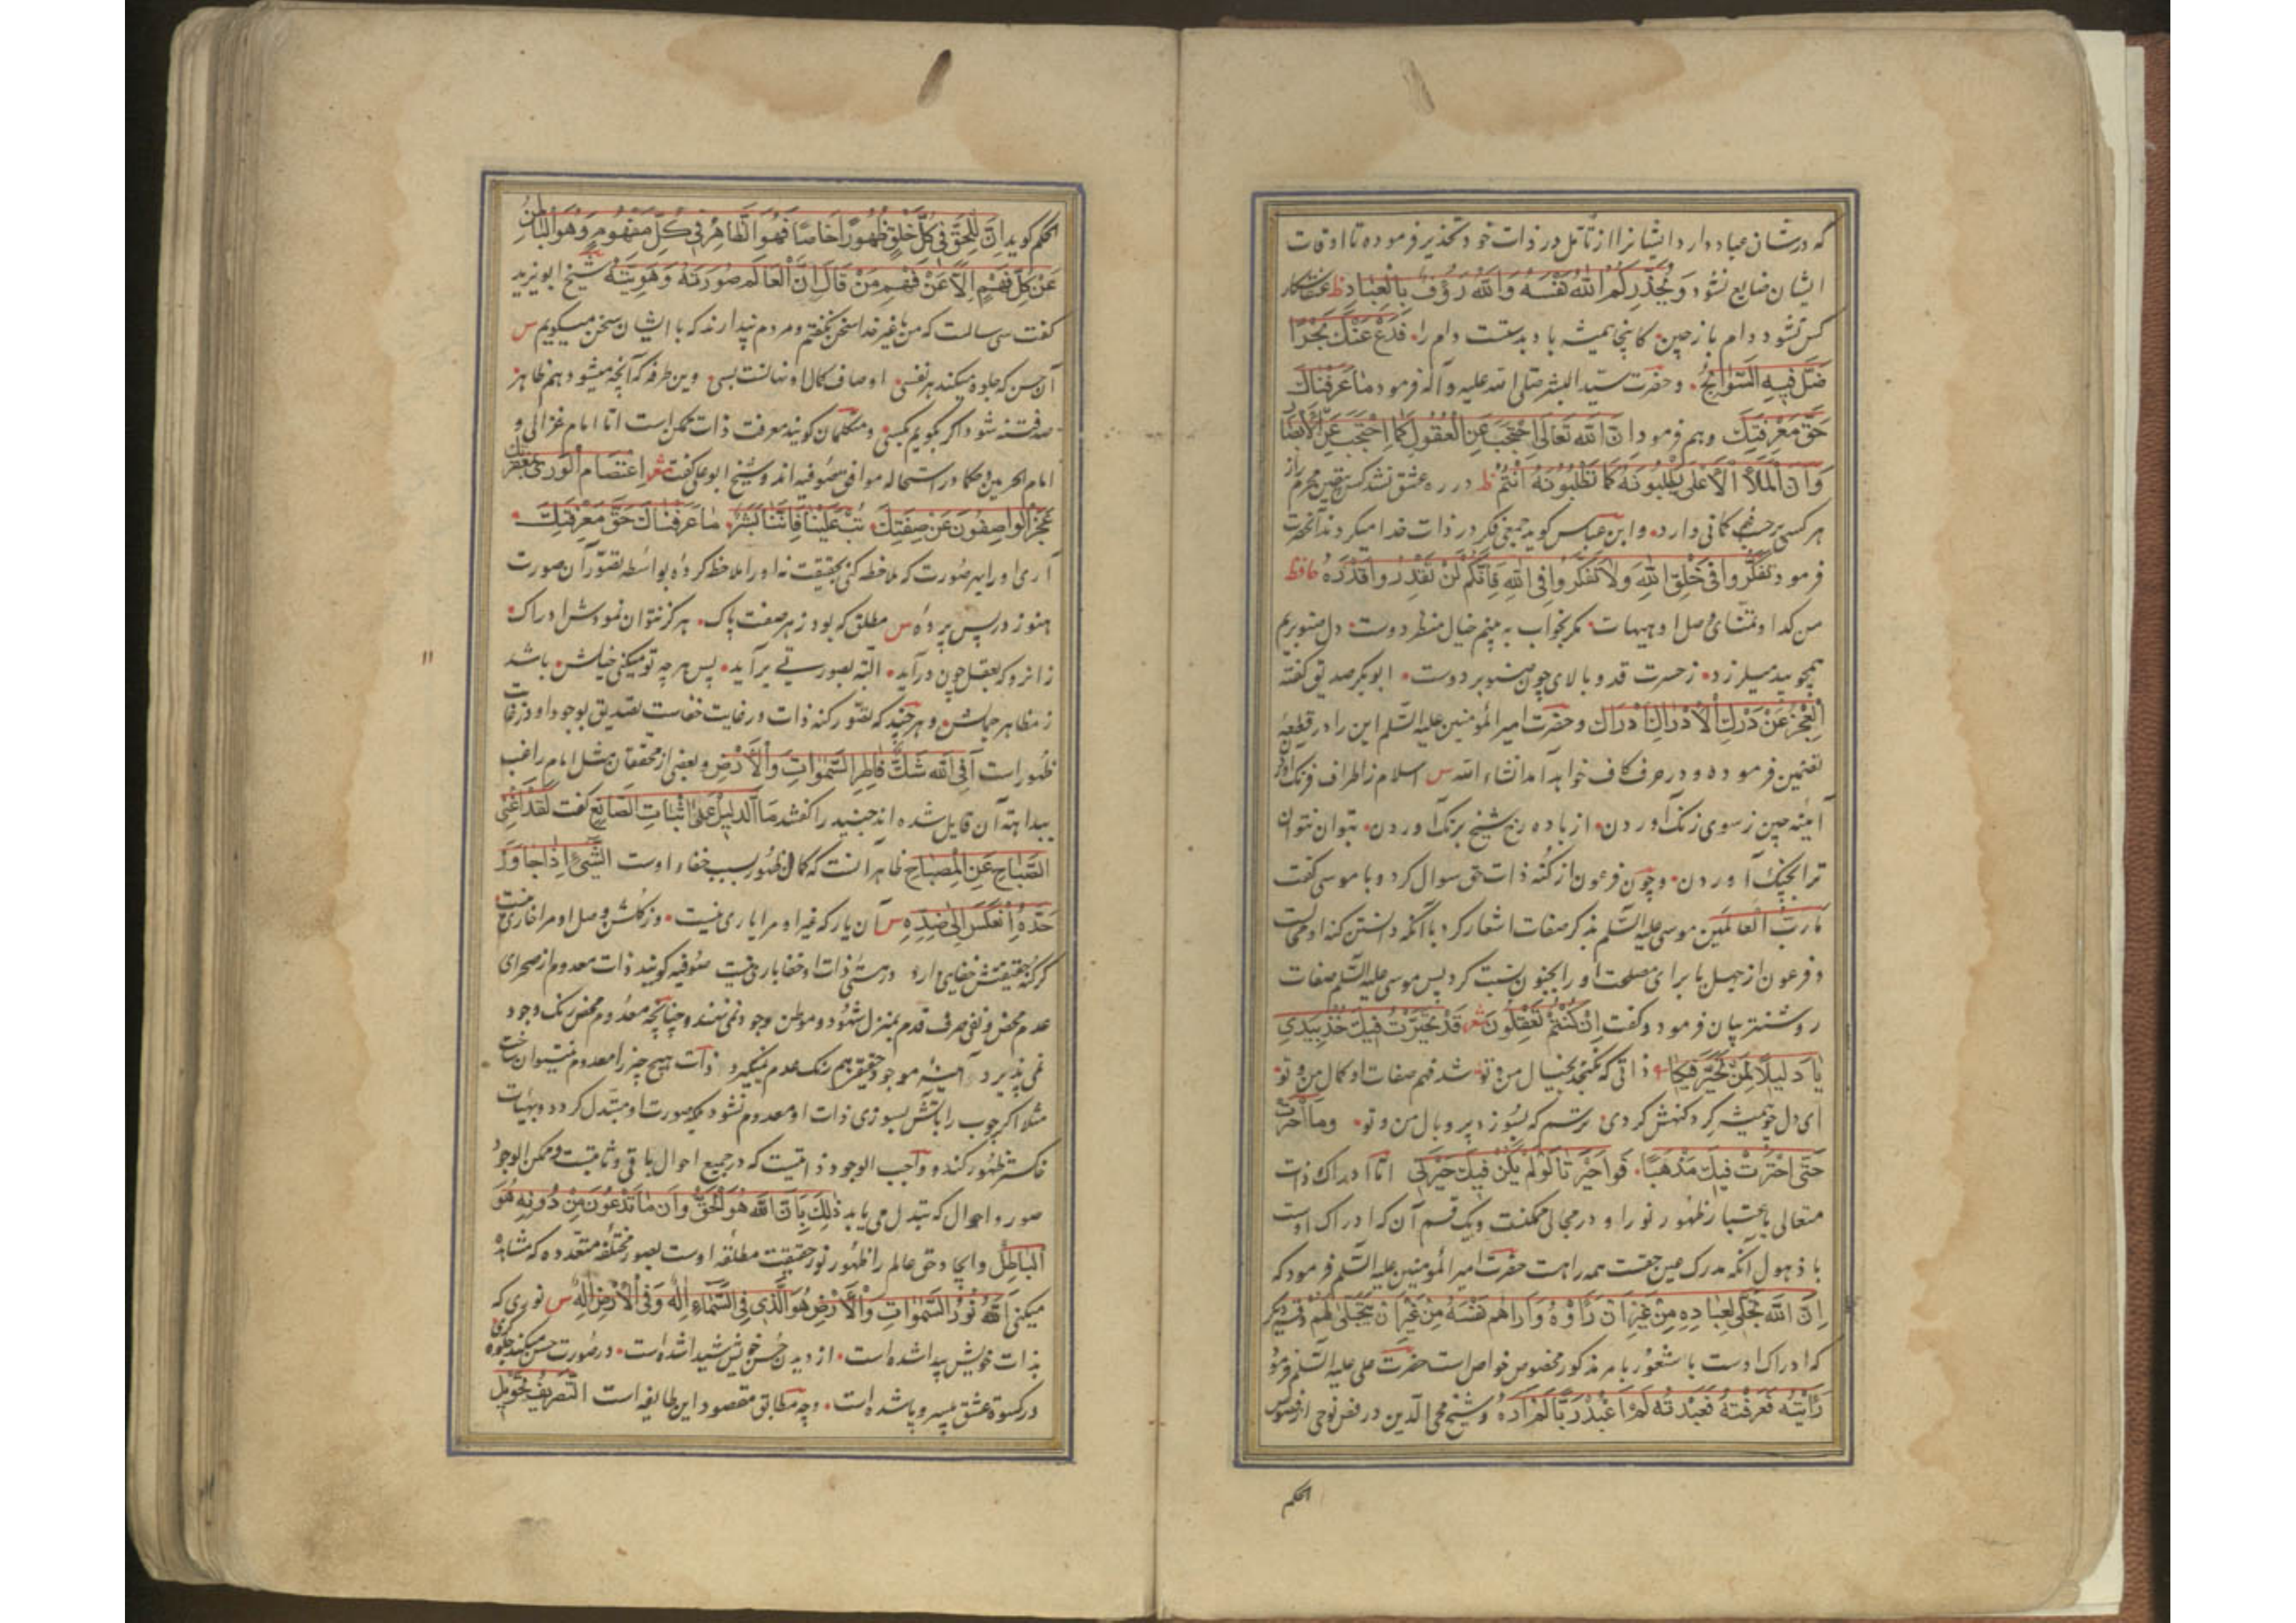 که در شان عباد دارد ایشانرا از تأمل در ذات خود تحذیر فرموده تا اوقات
ایشان ضایع نشود وَیُحَذِّرُکُمُ اللّٰهُ نَفْسَهُ وَاللّٰهُ رَؤُفٌ بِالْعِبَادِ ظ عنقا شکار
کس نشود دام باز چین کانجا همیشه باد بدستست دام را فَدَعْ عَنْكَ بَحْرًا
ضَلَّ فِیهِ السَّوَابِحُ وحضرت سید البشر صلی الله علیه وآله فرمود مَا عَرَفْنَاكَ
حَقَّ مَعْرِفَتِكَ وهم فرمود اِنَّ اللّٰهَ تَعَالٰی اِحْتَجَبَ عَنِ الْعُقُولِ کَمَا اِحْتَجَبَ عَنِ الْاَبْصَارِ
وَاِنَّ الْمَلَأَ الْاَعْلٰی یَطْلُبُونَهُ کَمَا تَطْلُبُونَهُ اَنْتُمْ ظ در ره عشق نشد کس بیقین محرم راز
هر کسی بر حسب فهم کمانی دارد وابن عباس کوید جمعی فکر در ذات خدا میکردند آنحضرت
فرمود تَفَکَّرُوا فِی خَلْقِ اللّٰهِ وَلَا تَفَکَّرُوا فِی اللّٰهِ فَاِنَّکُمْ لَنْ تَقْدِرُوا قَدْرَهُ حافظ
من کدا و تمنای وصل او هیهات مکر بخواب به بینم خیال منظر دوست دل صنوبریم
همچو بید میلرزد ز حسرت قد و بالای چون صنوبر دوست ابوبکر صدیق کفته
اَلْعَجْزُ عَنْ دَرَكِ الْاِدْرَاكِ اِدْرَاك وحضرت امیر المؤمنین علیه السّلم این را در قطعهٔ
تضمین فرموده و در حرف کاف خواهد آمد انشاء الله س اسلام ز اطراف فرنك آوردن
آینه چین ز سوی زنك آوردن از باده رخ شیخ برنك آوردن بتوان نتوان
ترا بچنك آوردن وچون فرعون از کنه ذات حق سوال کرد و با موسی کفت
مَا رَبُّ الْعَالَمِینَ موسی علیه السّلم بذکر صفات اشعار کرد با آنکه دانستن کنه او محالست
و فرعون از جهل یا برای مصلحت او را بجنون نسبت کرد پس موسی علیه السّلم صفات
روشنتر بیان فرمود و کفت اِنْ کُنْتُمْ تَعْقِلُونَ شعر قَدْ تَحَیَّرْتُ فِیكَ خُذْ بِیَدِی
یَا دَلِیلًا لِمَنْ تَحَیَّرَ فِیكَا ذاتی که نکنجد بخیال من و تو شد فهم صفات او کمال من و تو
ای دل چو همیشه کرد کنهش کردی ترسم که بسوزد پر و بال من و تو وَمَا احْتَرْتُ
حَتَّی اخْتَرْتُ فِیكَ مَذْهَبًا فَوَا حَیْرَتَا لَوْ لَمْ یَکُنْ فِیكَ حَیْرَتِی امّا ادراك ذات
متعالی باعتبار ظهور نور او در مجالی ممکنست ویك قسم آن که ادراك اوست
با ذهول آنکه مدرك عین حقست همه راهست حضرت امیر المؤمنین علیه السّلم فرمود که
اِنَّ اللّٰهَ تَجَلّٰی لِعِبَادِهِ مِنْ غَیْرِ اَنْ رَاَوْهُ وَاَرَاهُمْ نَفْسَهُ مِنْ غَیْرِ اَنْ یَتَجَلّٰی لَهُمْ وقسم دیکر
که ادراك اوست با شعور بامر مذکور مخصوص خواص است حضرت علی علیه السّلم فرمود
رَاَیْتُهُ فَعَرَفْتُهُ فَعَبَدْتُهُ لَمْ اَعْبُدْ رَبًّا لَمْ اَرَهُ وشیخ محی الدین در فص نوحی از فصوص
الحکم
الحکم کوید اِنَّ لِلْحَقِّ فِی کُلِّ خَلْقٍ ظُهُورًا خَاصًّا فَهُوَ الظَّاهِرُ فِی کُلِّ مَفْهُومٍ وَهُوَ الْبَاطِنُ
عَنْ کُلِّ فَهْمٍ اِلَّا عَنْ فَهْمِ مَنْ قَالَ اِنَّ الْعَالَمَ صُورَتُهُ وَهُوِیَّتُهُ شیخ ابو یزید
کفت سی سالست که من با غیر خدا سخن نکفتم ومردم پندارند که با ایشان سخن میکویم س
آن حسن که جلوه میکند هر نفسی اوصاف کمال او نهانست بسی وین طرفه که آنچه میشود هم ظاهر
صد فتنه شود اکر بکویم بکسی ومتکلمان کویند معرفت ذات ممکن است امّا امام غزالی و
امام الحرمین وحکما در استحاله موافق صوفیه اند وشیخ ابو علی کفت شعر اِعْتِصَامُ الْوَرٰی بِمَغْفِرَتِكَ
عَجَزَ الْوَاصِفُونَ عَنْ صِفَتِكَ تُبْ عَلَیْنَا فَاِنَّنَا بَشَرٌ مَا عَرَفْنَاكَ حَقَّ مَعْرِفَتِكَ
آری او را بهر صورت که ملاحظه کنی بحقیقت نه او را ملاحظه کردهٔ بواسطه تصوّر آن صورت
هنوز در پس پردهٔ س مطلق که بود ز هر صفت پاك هرکز نتوان نمودش ادراك
زانرو که بعقل چون درآید البته بصورتی برآید پس هر چه تو میکنی خیالش باشد
ز مظاهر جمالش وهر چند که تصوّر کنه ذات در غایت خفاست تصدیق بوجود او در غایت
ظهور است اَفِی اللّٰهِ شَكٌّ فَاطِرِ السَّمٰوَاتِ وَالْاَرْضِ وبعضی از محققان مثل امام راغب
ببداهت آن قایل شده اند جنید را کفتند مَا الدَّلِیلُ عَلٰی اِثْبَاتِ الصَّانِعِ کفت لَقَدْ اَغْنَی
الصَّبَاحُ عَنِ الْمِصْبَاحِ ظاهر آنست که کمال ظهور سبب خفاء اوست اَلشَّیْءُ اِذَا جَاوَزَ
حَدَّهُ اِنْعَکَسَ اِلٰی ضِدِّهِ س آن یار که غیر او مرا یاری نیست وز کلشن وصل او مرا خاری نیست
کر کنه حقیقتش خفایی دارد در هستی ذات او خفا باری نیست صوفیه کویند ذات معدوم از صحرای
عدم محض ونفی صرف قدم بمنزل شهود وموطن وجود نمی نهد وچنانچه معدوم محض رنك وجود
نمی پذیرد آینه موجود حقیقی هم رنك عدم نمیکیرد ذات هیچ چیز را معدوم نمیتوان ساخت
مثلا اکر چوب را بآتش بسوزی ذات او معدوم نشود بلکه صورت او مبتدل کردد وبهیئات
خاکستر ظهور کند وواجب الوجود ذاتیست که در جمیع احوال باقی وثابتست وممکن الوجود
صور واحوال که تبدل می یابد ذٰلِكَ بِاَنَّ اللّٰهَ هُوَ الْحَقُّ وَاَنَّ مَا تَدْعُونَ مِنْ دُونِهِ هُوَ
الْبَاطِلُ وایجاد حق عالم را ظهور نور حقیقت مطلقه اوست بصور مختلفه متعدّده که مشاهده
میکنی اَللّٰهُ نُورُ السَّمٰوَاتِ وَالْاَرْضِ هُوَ الَّذِی فِی السَّمَاءِ اِلٰهٌ وَفِی الْاَرْضِ اِلٰهٌ س نوری که
بذات خویش پیدا شده است از دیدن حسن خویش شیدا شده است در صورت حسن میکند جلوه کری
در کسوة عشق بی سر وپا شده است وچه مطابق مقصود این طایفه است اَلتَّصْرِیفُ تَحْوِیلُ
۱۱